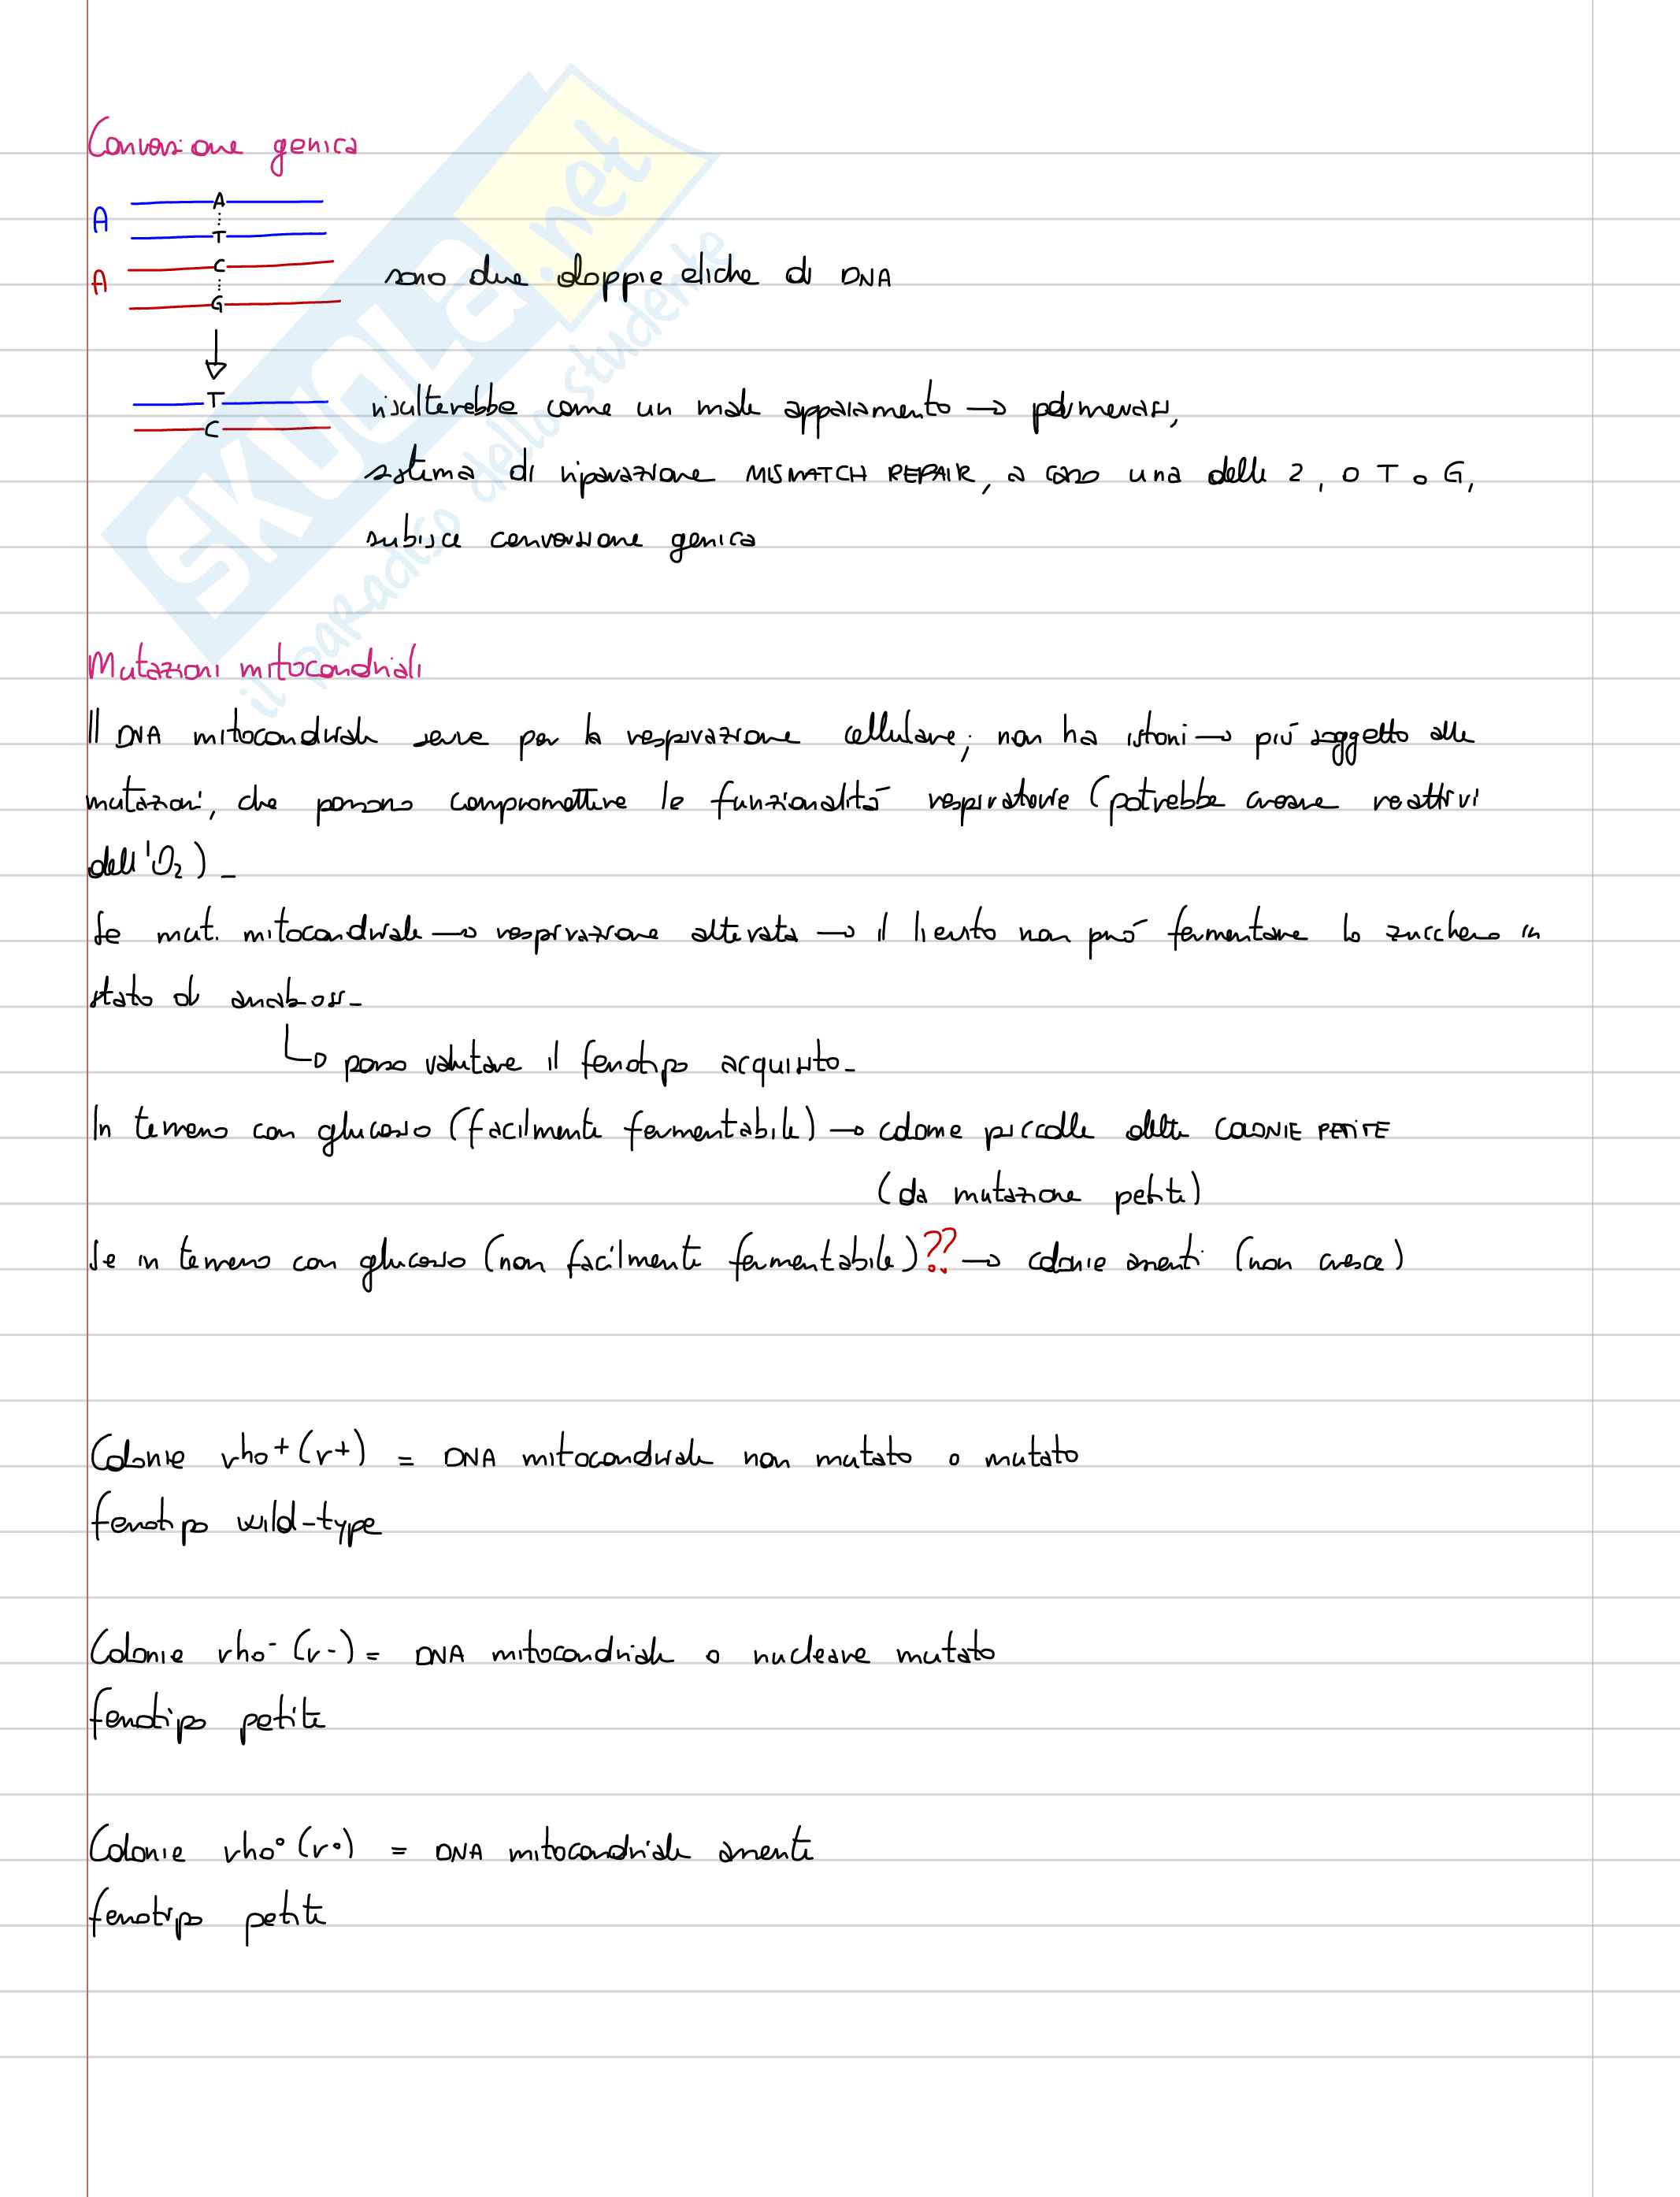 Conversione genica
A
A
T
A
C
G
sono due doppie eliche di DNA
T
C
risulterebbe come un male appaiamento → per
sistema di riparazione MISMATCH REPAIR, a caso una delle 2, o T o G,
subisce conversione genica
Mutazioni mitocondriali
Il DNA mitocondriale serve per la respirazione cellulare; non ha istoni → più soggetto alle
mutazioni, che possono compromettere le funzionalità respiratorie (potrebbe creare reattivi
dell'O₂)_
Se mut. mitocondriale → respirazione alterata → il lievito non può fermentare lo zucchero in
stato di anabosi_
↳ posso valutare il fenotipo acquisito_
In terreno con glucosio (facilmente fermentabile) → colonie piccole dette COLONIE PETITE
(da mutazione petite)
Se in terreno con glucosio (non facilmente fermentabile)?? → colonie assenti (non cresce)
Colonie rho⁺ (r+) = DNA mitocondriale non mutato o mutato
fenotipo wild-type
Colonie rho⁻ (r-) = DNA mitocondriale o nucleare mutato
fenotipo petite
Colonie rho° (r°) = DNA mitocondriale assente
fenotipo petite
SKUOLA.net
il paradiso dello studente